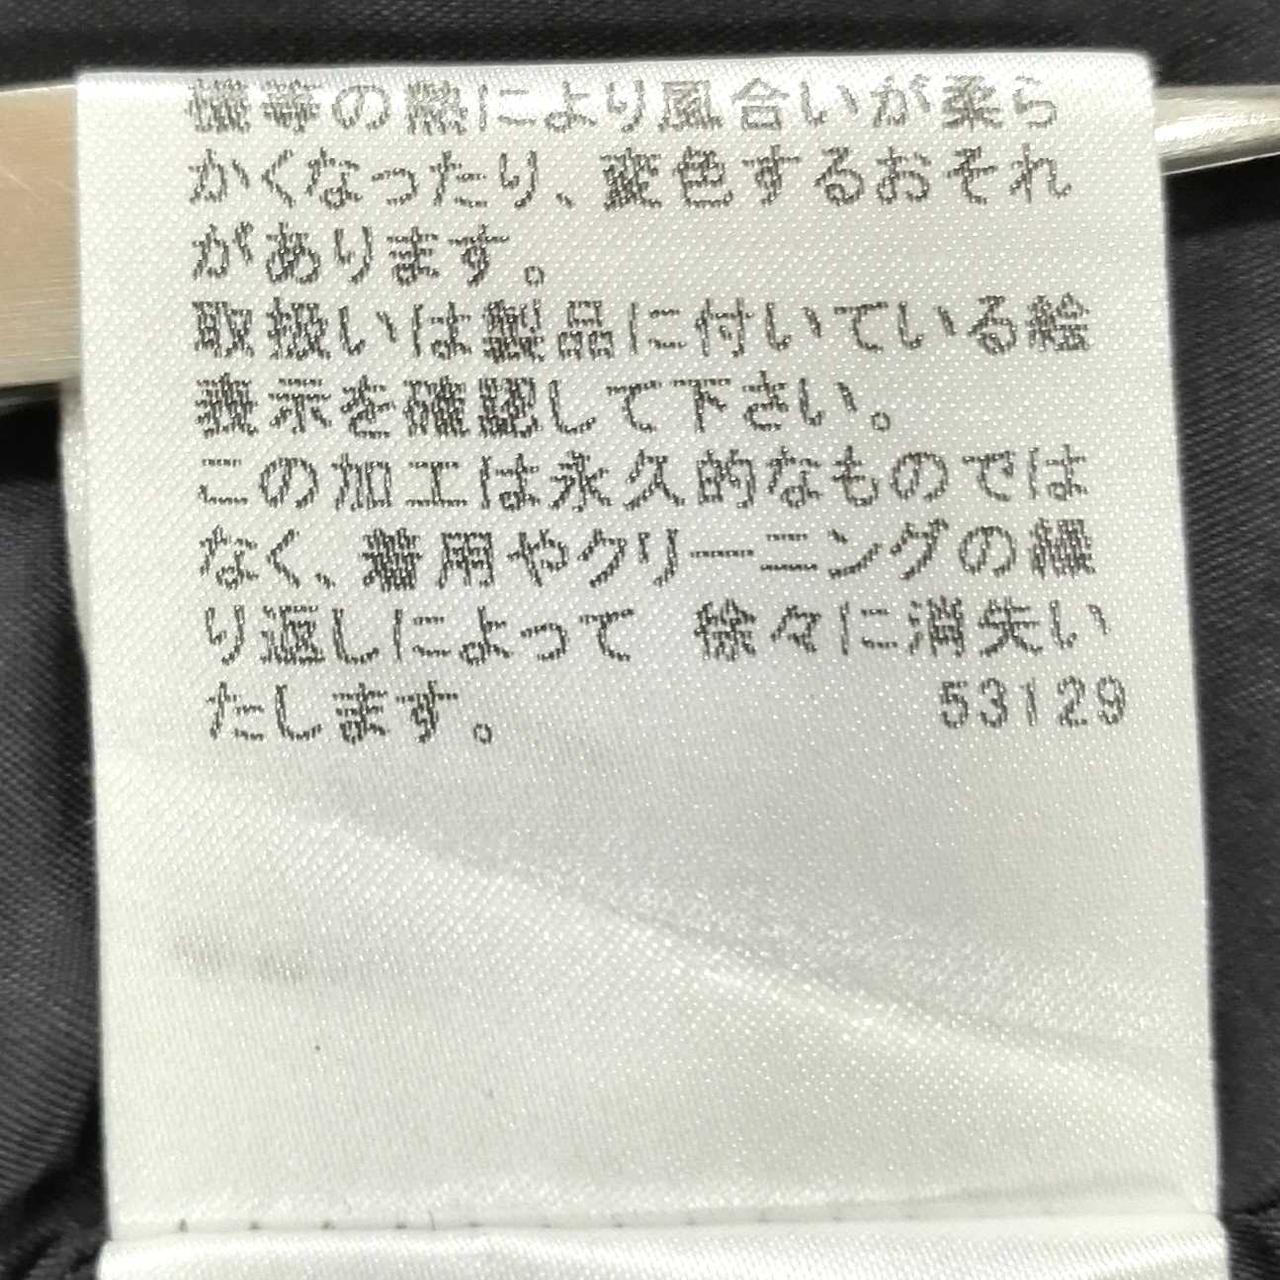 機等の熱により風合いが柔ら
かくなったり、変色するおそれ
があります。
取扱いは製品に付いている絵
表示を確認して下さい。
この加工は永久的なものでは
なく、着用やクリーニングの繰
り返しによって 徐々に消失い
たします。 53129